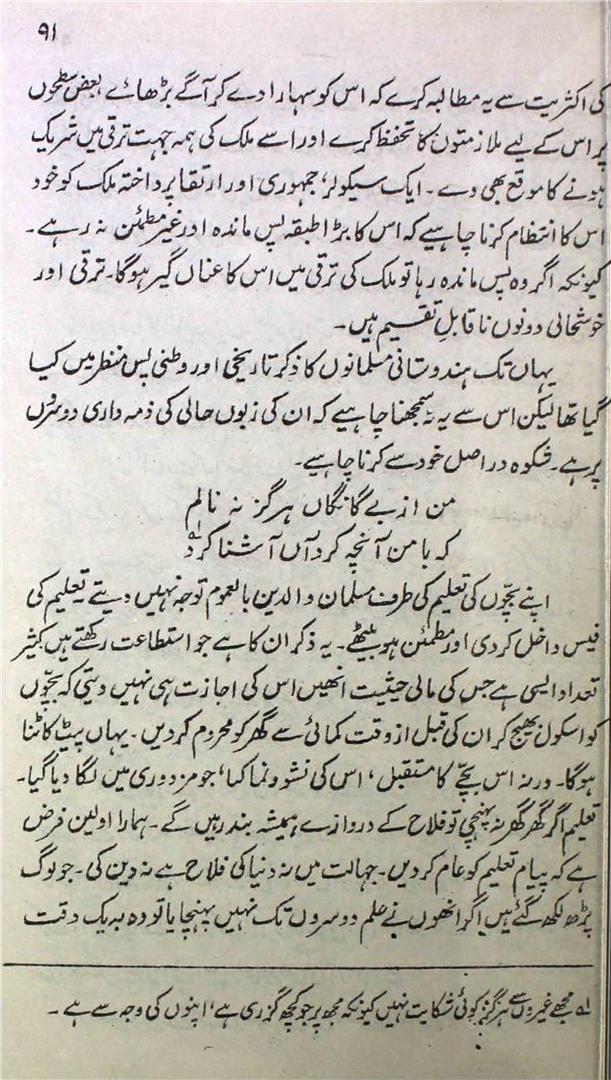 ۹۱
کی اکثریت سے یہ مطالبہ کرے کہ اس کو سہارا دے کر آگے بڑھائے بعض سطحوں
پر اس کے لیے ملازمتوں کا تحفظ کرے اور اسے ملک کی ہمہ جہت ترقی میں شریک
ہونے کا موقع بھی دے۔ ایک سیکولر، جمہوری اور ارتقا پرداختہ ملک کو خود
اس کا انتظام کرنا چاہیے کہ اس کا بڑا طبقہ پس ماندہ اور غیر مطمئن نہ رہے۔
کیونکہ اگر وہ پس ماندہ رہا تو ملک کی ترقی میں اس کا عناں گیر ہوگا۔ ترقی اور
خوشحالی دونوں ناقابلِ تقسیم ہیں۔
یہاں تک ہندوستانی مسلمانوں کا ذکر تاریخی اور وطنی پس منظر میں کیا
گیا تھا لیکن اس سے یہ نہ سمجھنا چاہیے کہ ان کی زبوں حالی کی ذمہ داری دوسروں
پر ہے۔ شکوہ دراصل خود سے کرنا چاہیے۔
من از بے گانگاں ہرگز نہ نالم
کہ با من آنچہ کرد آں آشنا کرد ؎۱
اپنے بچّوں کی تعلیم کی طرف مسلمان والدین بالعموم توجہ نہیں دیتے تعلیم کی
فیس داخل کر دی اور مطمئن ہو بیٹھے۔ یہ ذکر ان کا ہے جو استطاعت رکھتے ہیں کثیر
تعداد ایسی ہے جس کی مالی حیثیت انھیں اس کی اجازت ہی نہیں دیتی کہ بچّوں
کو اسکول بھیج کر ان کی قبل از وقت کمائی سے گھر کو محروم کر دیں۔ یہاں پیٹ کاٹنا
ہوگا۔ ورنہ اس بچّے کا مستقبل، اس کی نشو و نما کیا، جو مزدوری میں لگا دیا گیا۔
تعلیم اگر گھر گھر نہ پہنچی تو فلاح کے دروازے ہمیشہ بند رہیں گے۔ ہمارا اولین فرض
ہے کہ پیام تعلیم کو عام کر دیں۔ جہالت میں نہ دنیا کی فلاح ہے نہ دین کی۔ جو لوگ
پڑھ لکھ گئے ہیں اگر انھوں نے علم دوسروں تک نہیں پہنچایا تو وہ بہ یک وقت
؎۱ مجھے غیروں سے ہرگز کوئی شکایت نہیں کیونکہ مجھ پر جو کچھ گزری ہے، اپنوں کی وجہ سے ہے۔